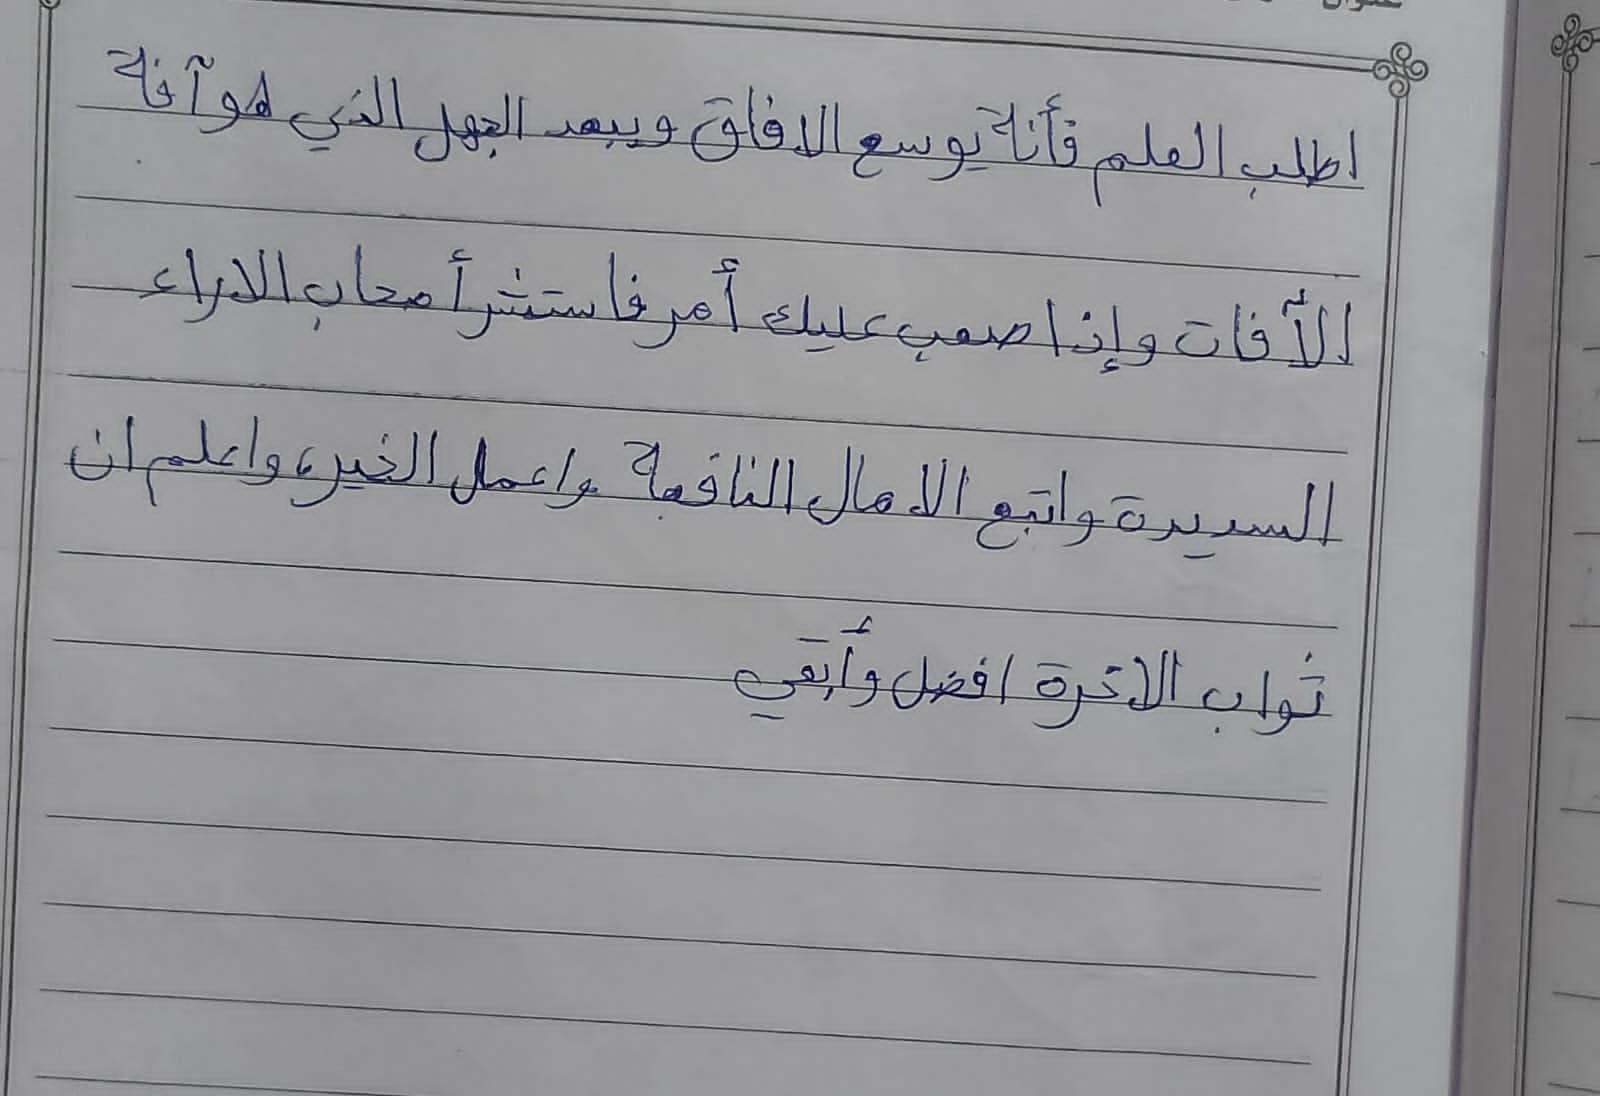 اطلب العلم فأنة يوسع الافاق ويبعد الجهل الذي هو آفة
الأفات وإذا صعب عليك أمر فاستشر أصحاب الاراء
السديدة واتبع الامال النافعة واعمل الخير، واعلم ان
ثواب الاخرة افضل وأبقي